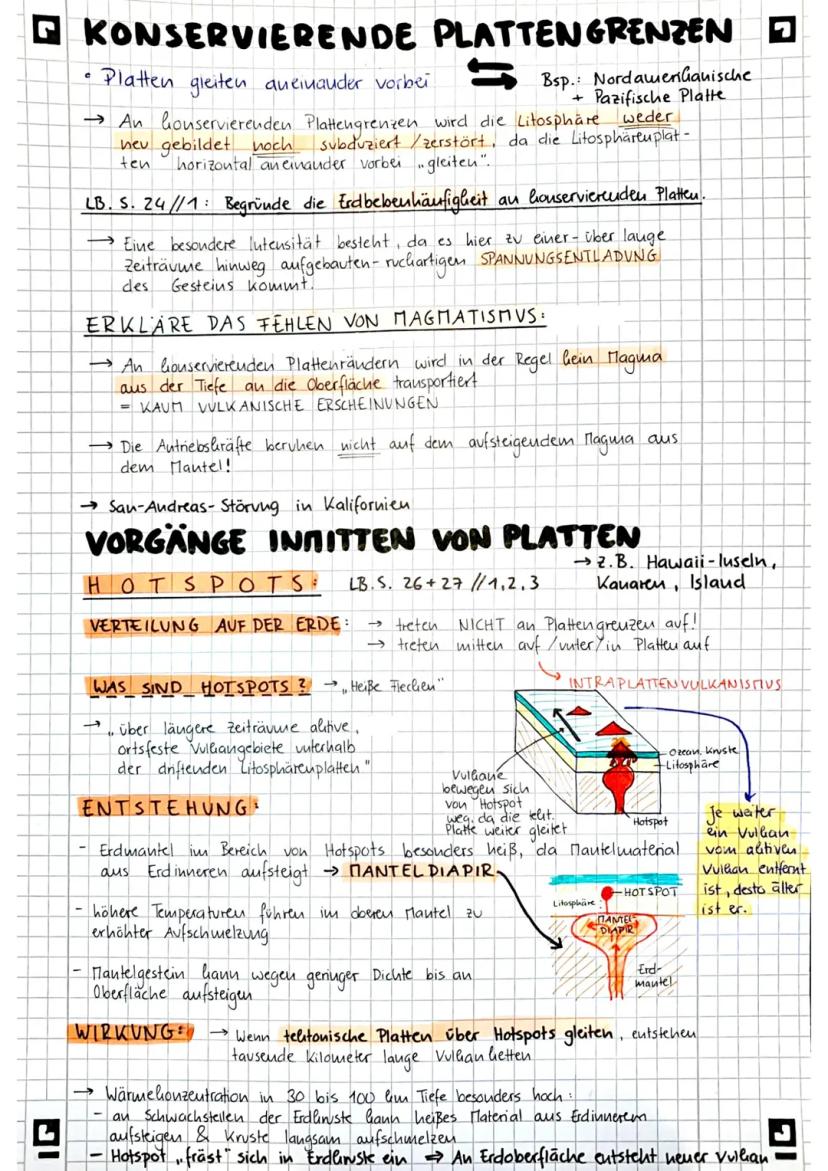 KONSERVIERENDE PLATTENGRENZEN
• Platten gleiten aneinander vorbei
Bsp.: Nordamerikanische
+ Pazifische Platte
→ An konservierenden Plattengrenzen wird die Litosphäre weder
neu gebildet noch subduziert/zerstört, da die Litosphärenplat-
ten horizontal aneinander vorbei „gleiten".
LB. S. 24//1: Begründe die Erdbebenhäufigkeit an konservierenden Platten.
→ Eine besondere Intensität besteht, da es hier zu einer - über lange
Zeiträume hinweg aufgebauten - ruckartigen SPANNUNGSENTLADUNG
des Gesteins kommt.
ERKLÄRE DAS FEHLEN VON MAGMATISMUS:
→ An konservierenden Plattenrändern wird in der Regel kein Magma
aus der Tiefe an die Oberfläche transportiert
= KAUM VULKANISCHE ERSCHEINUNGEN
→ Die Antriebskräfte beruhen nicht auf dem aufsteigendem Magma aus
dem Mantel!
→ San-Andreas-Störung in Kalifornien
VORGÄNGE INMITTEN VON PLATTEN
→ z.B. Hawaii-Inseln,
Kanaren, Island
HOTSPOTS: LB. S. 26+27 //1,2,3
VERTEILUNG AUF DER ERDE: → treten NICHT an Plattengrenzen auf!
→ treten mitten auf/unter/in Platten auf
INTRAPLATTENVULKANISMUS
WAS SIND HOTSPOTS? → „Heiße Flecken"
→ „über längere Zeiträume aktive,
ortsfeste Vulkangebiete unterhalb
der driftenden Litosphärenplatten"
Vulkane
bewegen sich
von Hotspot
weg, da die tekt.
Platte weiter gleitet
Ozean. Kruste
Litosphäre
Hotspot
Je weiter
ein Vulkan
vom aktiven
Vulkan entfernt
ist, desto älter
ist er.
ENTSTEHUNG:
- Erdmantel im Bereich von Hotspots besonders heiß, da Mantelmaterial
aus Erdinneren aufsteigt → MANTELDIAPIR
- höhere Temperaturen führen im oberen Mantel zu
erhöhter Aufschmelzung
- Mantelgestein kann wegen geringer Dichte bis an
Oberfläche aufsteigen
Litosphäre
HOTSPOT
MANTEL-
DIAPIR
Erd-
mantel
WIRKUNG: → Wenn tektonische Platten über Hotspots gleiten, entstehen
tausende Kilometer lange Vulkanketten
→ Wärmekonzentration in 30 bis 100 km Tiefe besonders hoch:
- an Schwachstellen der Erdkruste kann heißes Material aus Erdinnerem
aufsteigen & Kruste langsam aufschmelzen
- Hotspot „fräst" sich in Erdkruste ein ⇒ An Erdoberfläche entsteht neuer Vulkan